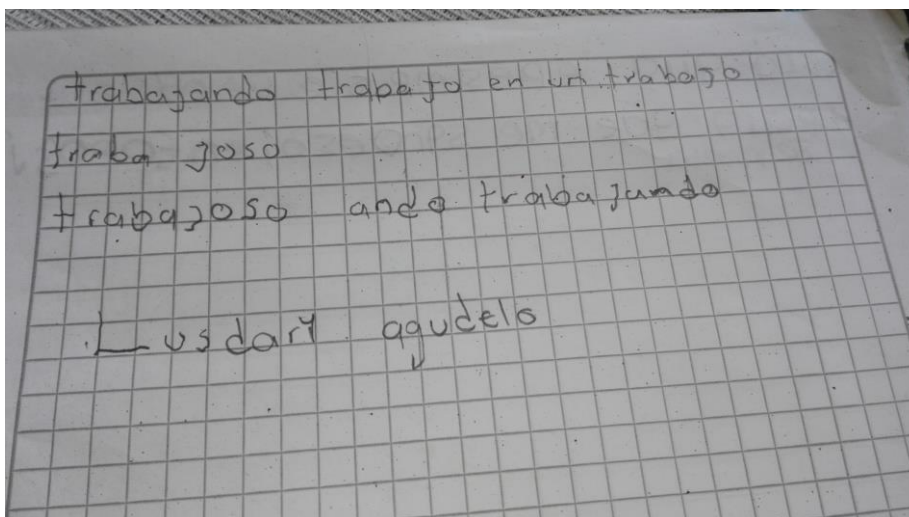 trabajando trabajo en un trabajo
traba joso
trabajoso ando trabajando
Lusdary agudelo